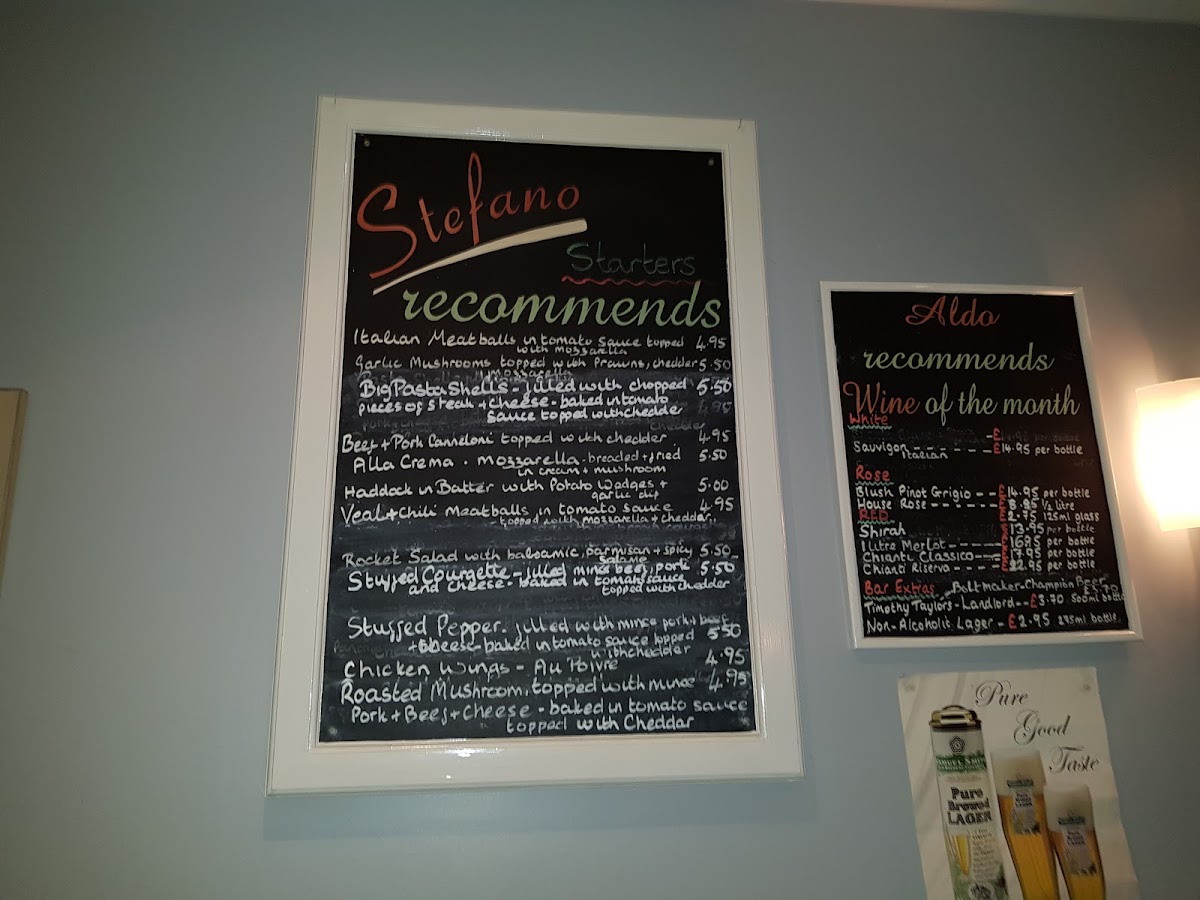 Stefano
Starters
recommends
Italian Meatballs in tomato sauce topped 4.95
with mozzarella
Garlic Mushrooms topped with Prawns, chedder 5.50
+ mozzarella
Big Pasta Shells - filled with chopped 5.50
pieces of steak + cheese - baked in tomato
sauce topped with chedder
Beef + Pork Canneloni topped with chedder 4.95
Alla Crema . mozzarella - breaded + fried 5.50
in cream + mushroom
Haddock in Batter with Potato Wadges + 5.00
garlic dip
Veal + Chili Meatballs in tomato sauce 4.95
- topped with mozzarella + cheddar
Rocket Salad with balsamic, parmisan + spicy 5.50
Salami
Stuffed Courgette - filled mince beef, pork 5.50
and cheese - baked in tomato sauce
topped with chedder
Stuffed Pepper. filled with mince pork + beef
+ cheese - baked in tomato sauce topped 5.50
with chedder
Chicken Wings - Au Poivre 4.95
Roasted Mushroom, topped with mince 4.95
Pork + Beef + Cheese - baked in tomato sauce
topped with Cheddar
Aldo
recommends
Wine of the month
White
Sauvigon Italian £14.95 per bottle
Rose
Blush Pinot Grigio - - £14.95 per bottle
House Rose - - - £8.95 ½ litre
RED £2.75 125ml glass
Shirah £13.95 per bottle
1 litre Merlot - - - - £16.95 per bottle
Chiante Classico - - - £17.95 per bottle
Chianti Riserva - - - £22.95 per bottle
Bar Extras Boltmaker - Champion Beer
£3.70
Timothy Taylors - Landlord - - £3.70 500ml bottle
Non - Alcoholic Lager - £2.95 275ml bottle
Pure
Good
Taste
Pure
Brewed
LAGER